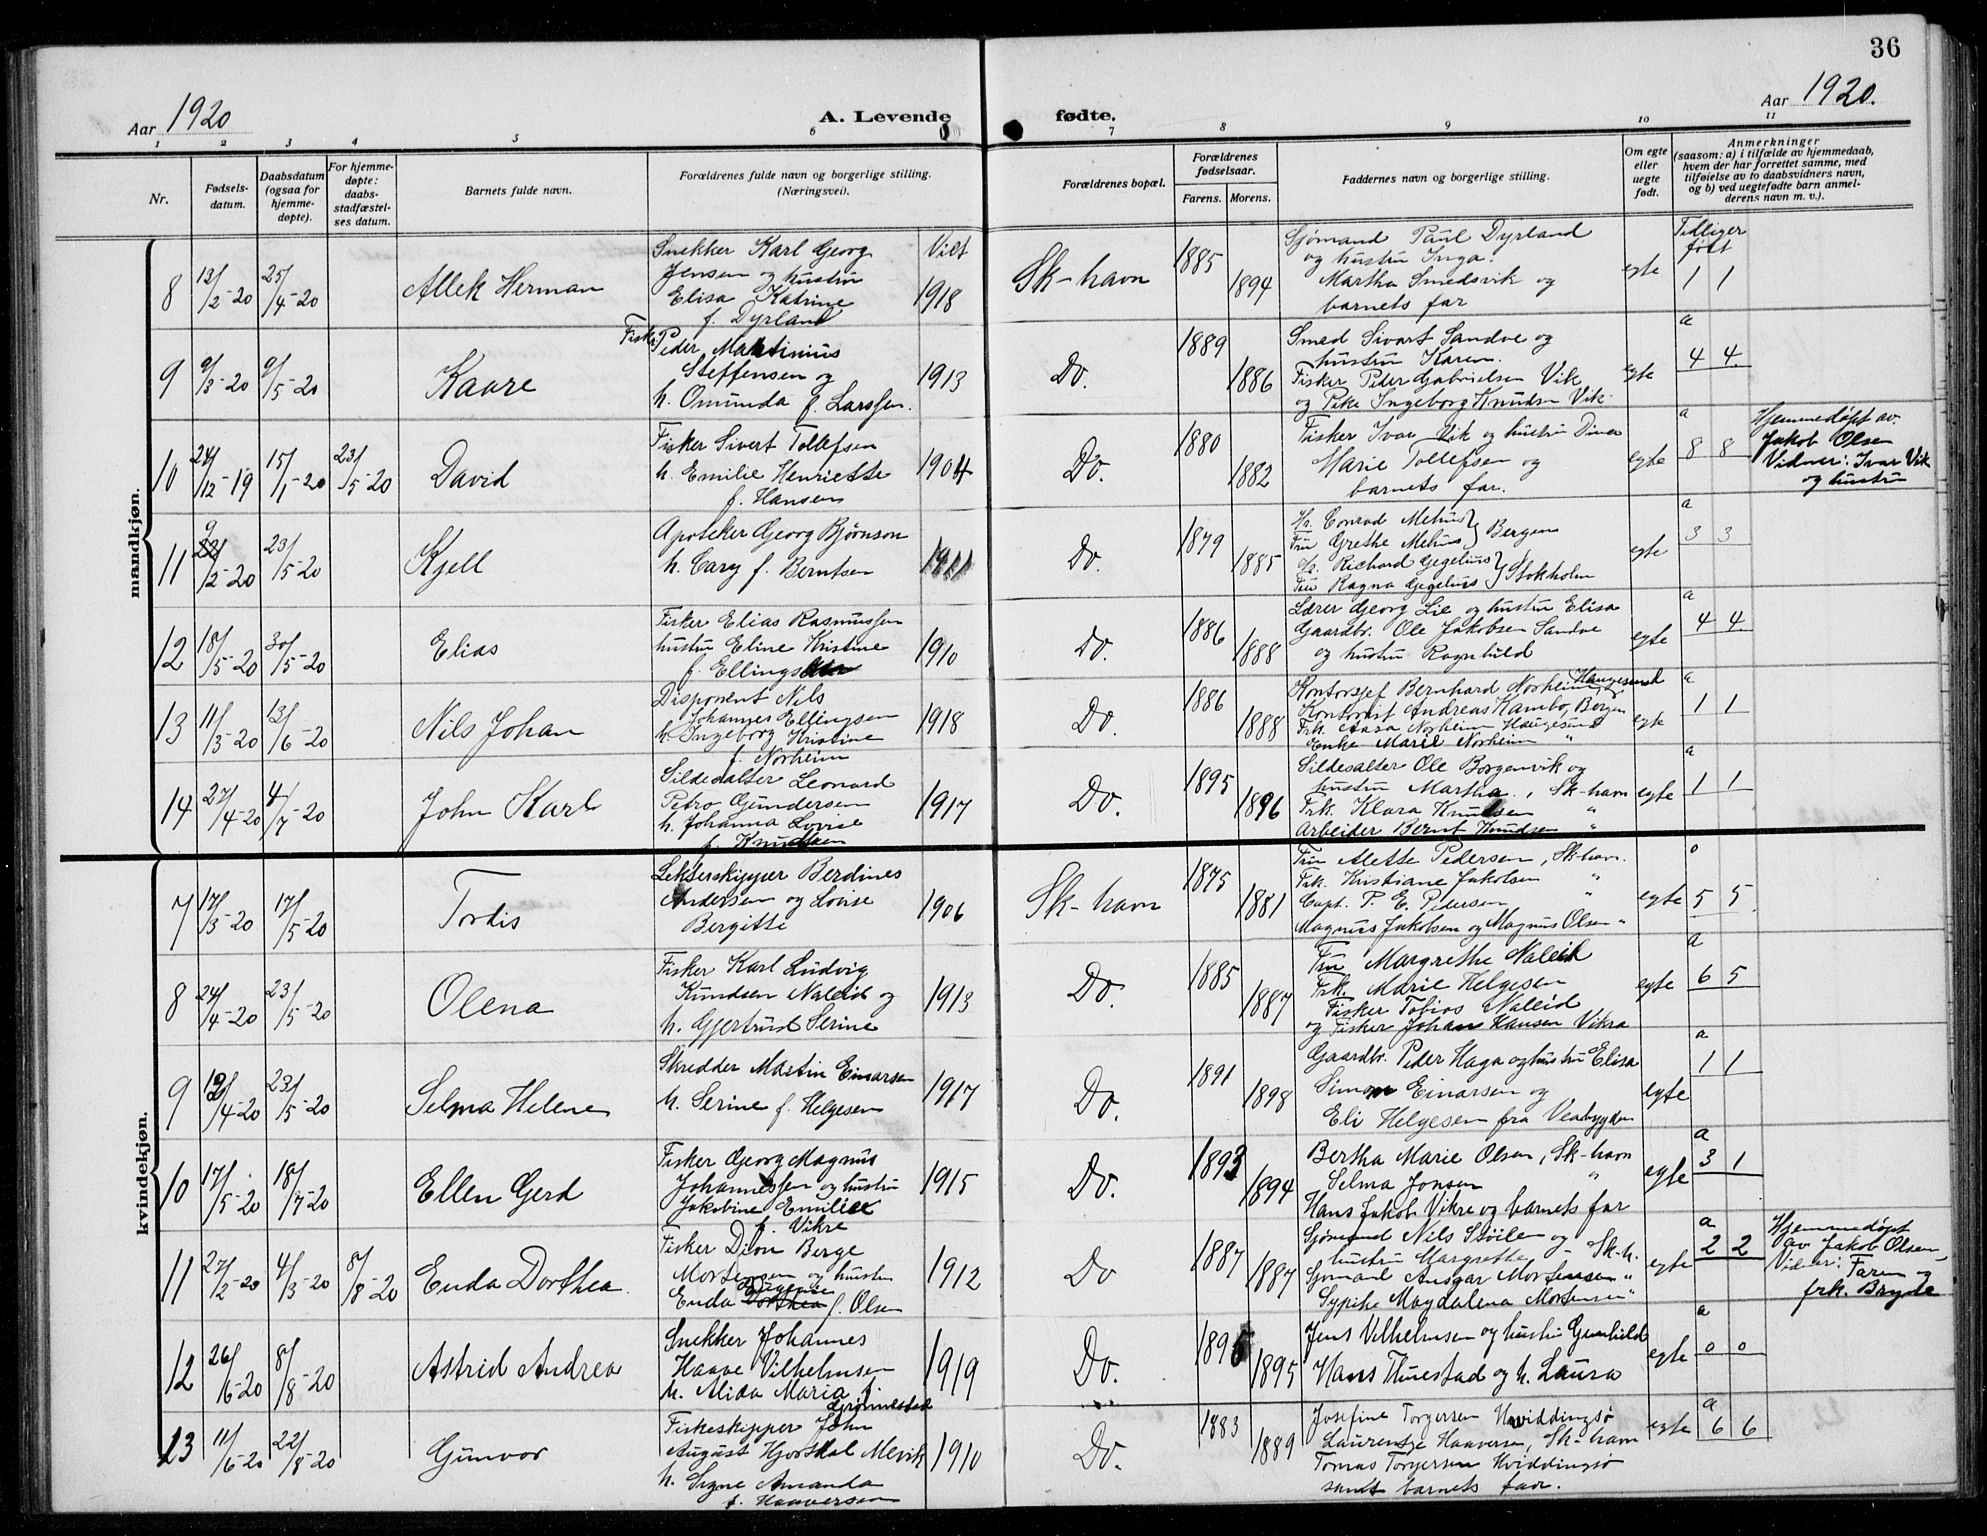 36
Aar 1920
A. Levende
fødte.
Aar 1920.
1 2 3 4 5 6 7 8 9 10 11
Nr.
Fødsels-
datum.
Daabsdatum
(ogsaa for
hjemme-
døpte).
For hjemme-
døpte:
daabs-
stadfæstel-
ses datum.
Barnets fulde navn.
Forældrenes fulde navn og borgerlige stilling.
(Næringsvei).
Forældrenes bopæl.
Forældrenes
fødselsaar.
Farens. Morens.
Faddernes navn og borgerlig stilling.
Om egte
eller
uegte
født.
Anmerkninger
(saasom: a) i tilfælde av hjemmedaab,
hvem der har forrettet samme, med
tilføielse av to daabsvidners navn,
og b) ved uegtefødte barn anmel-
derens navn m. v.).
mandkjøn.
8 13/2-20 25/4-20 Allek Herman
Snekker Karl Georg
Jensen og hustru
Elisa Katrine
f. Dyrland
Vilt
1918
Sk-havn 1885 1894
Sjømand Paul Dyrland
og hustru Inga.
Martha Smedsvik og
barnets far
egte
Tidliger
født
1 1
9 9/3-20 9/5-20 Kaare
Fisker Peder Martinius
Steffensen og
h. Omunda f. Larssen.
1913
Do. 1889 1886
Smed Sivart Sandve og
hustru Karen.
Fisker Peder Gabrielsen Vik
og Pike Ingeborg Knudsen Vik.
egte
a
4 4
10 24/12-19 15/1-20 23/5-20 David
Fisker Sivert Tollefsen
h. Emilie Henriette
f. Hansen
1904
Do. 1880 1882
Fisker Ivar Vik og hustru Dina
Marie Tollefsen og
barnets far.
egte
a
8 8
Hjemmedøpt av
Jakob Olsen
Vidner: Ivar Vik
og hustru
11 9/2-20 23/5-20 Kjell
Apoteker Georg Bjørnson
h. Cary f. Berntsen
1911
Do. 1879 1885
Hr. Conrad Mehus
Fru Grethe Mehus } Bergen
Hr. Richard Gegelius
Fru Ragna Gegelius } Stokholm
egte
a
3 3
12 18/5-20 30/5-20 Elias
Fisker Elias Rasmussen
hustru Eline Kristine
f. Ellingsen
1910
Do. 1886 1888
Lærer Georg Lie og hustru Elisa
Gaardbr. Ole Jakobsen Sandve
og hustru Ragnhild
egte
a
4 4
13 11/3-20 13/6-20 Nils Johan
Disponent Nils
Johannes Ellingsen
h. Ingeborg Kristine
f. Norheim
1918
Do. 1886 1888
Kontorsjef Bernhard Norheim, Haugesund
Kontorist Andreas Hambo, Bergen
Frk. Aasa Norheim Haugesund
Enke Marie Norheim "
egte
a
1 1
14 27/4-20 4/7-20 John Karl
Sildesalter Leonard
Petro Gundersen
h. Johanna Lovise
f. Knudsen
1917
Do. 1895 1896
Sildesalter Ole Borgenvik og
hustru Martha, Sk-havn
Frk. Klara Knudsen "
Arbeider Bernt Knudsen "
egte
a
1 1
kvindekjøn.
7 17/3-20 17/5-20 Tordis
Lekterskipper Berdines
Andersen og Lovise
Bergitte
1906
Sk-havn 1875 1881
Fru Alette Pedersen, Sk-havn.
Frk. Kristiane Jakobsen "
Capt. P. E. Pedersen "
Magnus Jakobsen og Magnus Olsen "
egte
a
5 5
8 24/4-20 23/5-20 Olena
Fisker Karl Ludvig
Knudsen Naleid og
h. Gjertrud Serine
1913
Do. 1885 1887
Fru Margrethe Naleid
Frk. Marie Helgesen
Fisker Tobias Naleid
og Fisker Johan Hansen Vikra
egte
a
6 5
9 /4-20 23/5-20 Selma Helene
Skredder Martin Einarsen
h. Serine f. Helgesen
1917
Do. 1891 1898
Gaardbr. Peder Haga og hustru Elisa
Simon Einarsen og
Eli Helgesen fra Veabygden
egte
a
1 1
10 17/5-20 18/7-20 Ellen Gerd
Fisker Georg Magnus
Johannessen og hustru
Jakobine Emilie
f. Vikre
1915
Do. 1893 1894
Bertha Marie Olsen, Sk-havn
Selma Jonsen "
Hans Jakob Vikre og barnets far
egte
a
3 1
11 27/2-20 4/3-20 8/8-20 Enda Dorthea
Fisker Dion Berge
Mortensen og hustru
Enda Dorthea f. Olsen
1912
Do 1887 1887
Sjømand Nils Støile og
hustru Margrethe - Sk-h.
Sjømand Ansgar Mortensen "
Sypike Magdalena Mortensen "
egte
a
2 2
Hjemmedøpt
av Jakob Olsen
Vidner: Faren og
frk. Bryde
12 26/6-20 8/8-20 Astrid Andrea
Snekker Johannes
Haave Vilhelmsen
h. Alida Maria f.
Grinnestad
1919
Do. 1895 1895
Jens Vilhelmsen og hustru Gunhild
Hans Tuestad og h. Laura
egte
a
0 0
13 11/6-20 22/8-20 Gunvor
Fiskeskipper John
August Hjorthal Mevik
h. Signe Amanda
f. Haaversen
1910
Do. 1883 1889
Josefine Torgersen Hviddingsø
Laurentse Haaversen, Sk-havn
Tomas Torgersen Hviddingsø
samt barnets far.
egte
a
6 6